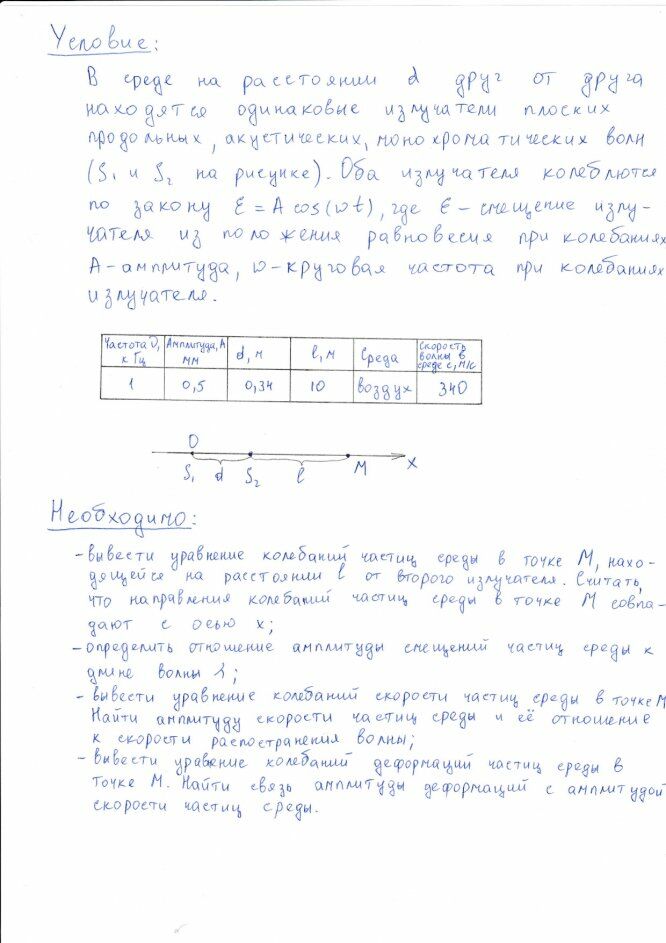 Условие:
В среде на расстоянии d друг от друга
находятся одинаковые излучатели плоских
продольных, акустических, монохроматических волн
(S₁ и S₂ на рисунке). Оба излучателя колеблются
по закону Ɛ = A cos(ωt), где Ɛ - смещение излу-
чателя из положения равновесия при колебаниях
A - амплитуда, ω - круговая частота при колебаниях
излучателя.
Частота ν, кГц Амплитуда, А мм d, м l, м Среда Скорость волны в среде c, м/с
1 0,5 0,34 10 воздух 340
O
S₁ d S₂ l M x
Необходимо:
- вывести уравнение колебаний частиц среды в точке М, нахо-
дящейся на расстоянии l от второго излучателя. Считать,
что направления колебаний частиц среды в точке М совпа-
дают с осью x;
- определить отношение амплитуды смещений частиц среды к
длине волны λ;
- вывести уравнение колебаний скорости частиц среды в точке М
Найти амплитуду скорости частиц среды и её отношение
к скорости распостранения волны;
- вывести уравнение колебаний деформаций частиц среды в
точке М. Найти связь амплитуды деформаций с амплитудой
скорости частиц среды.